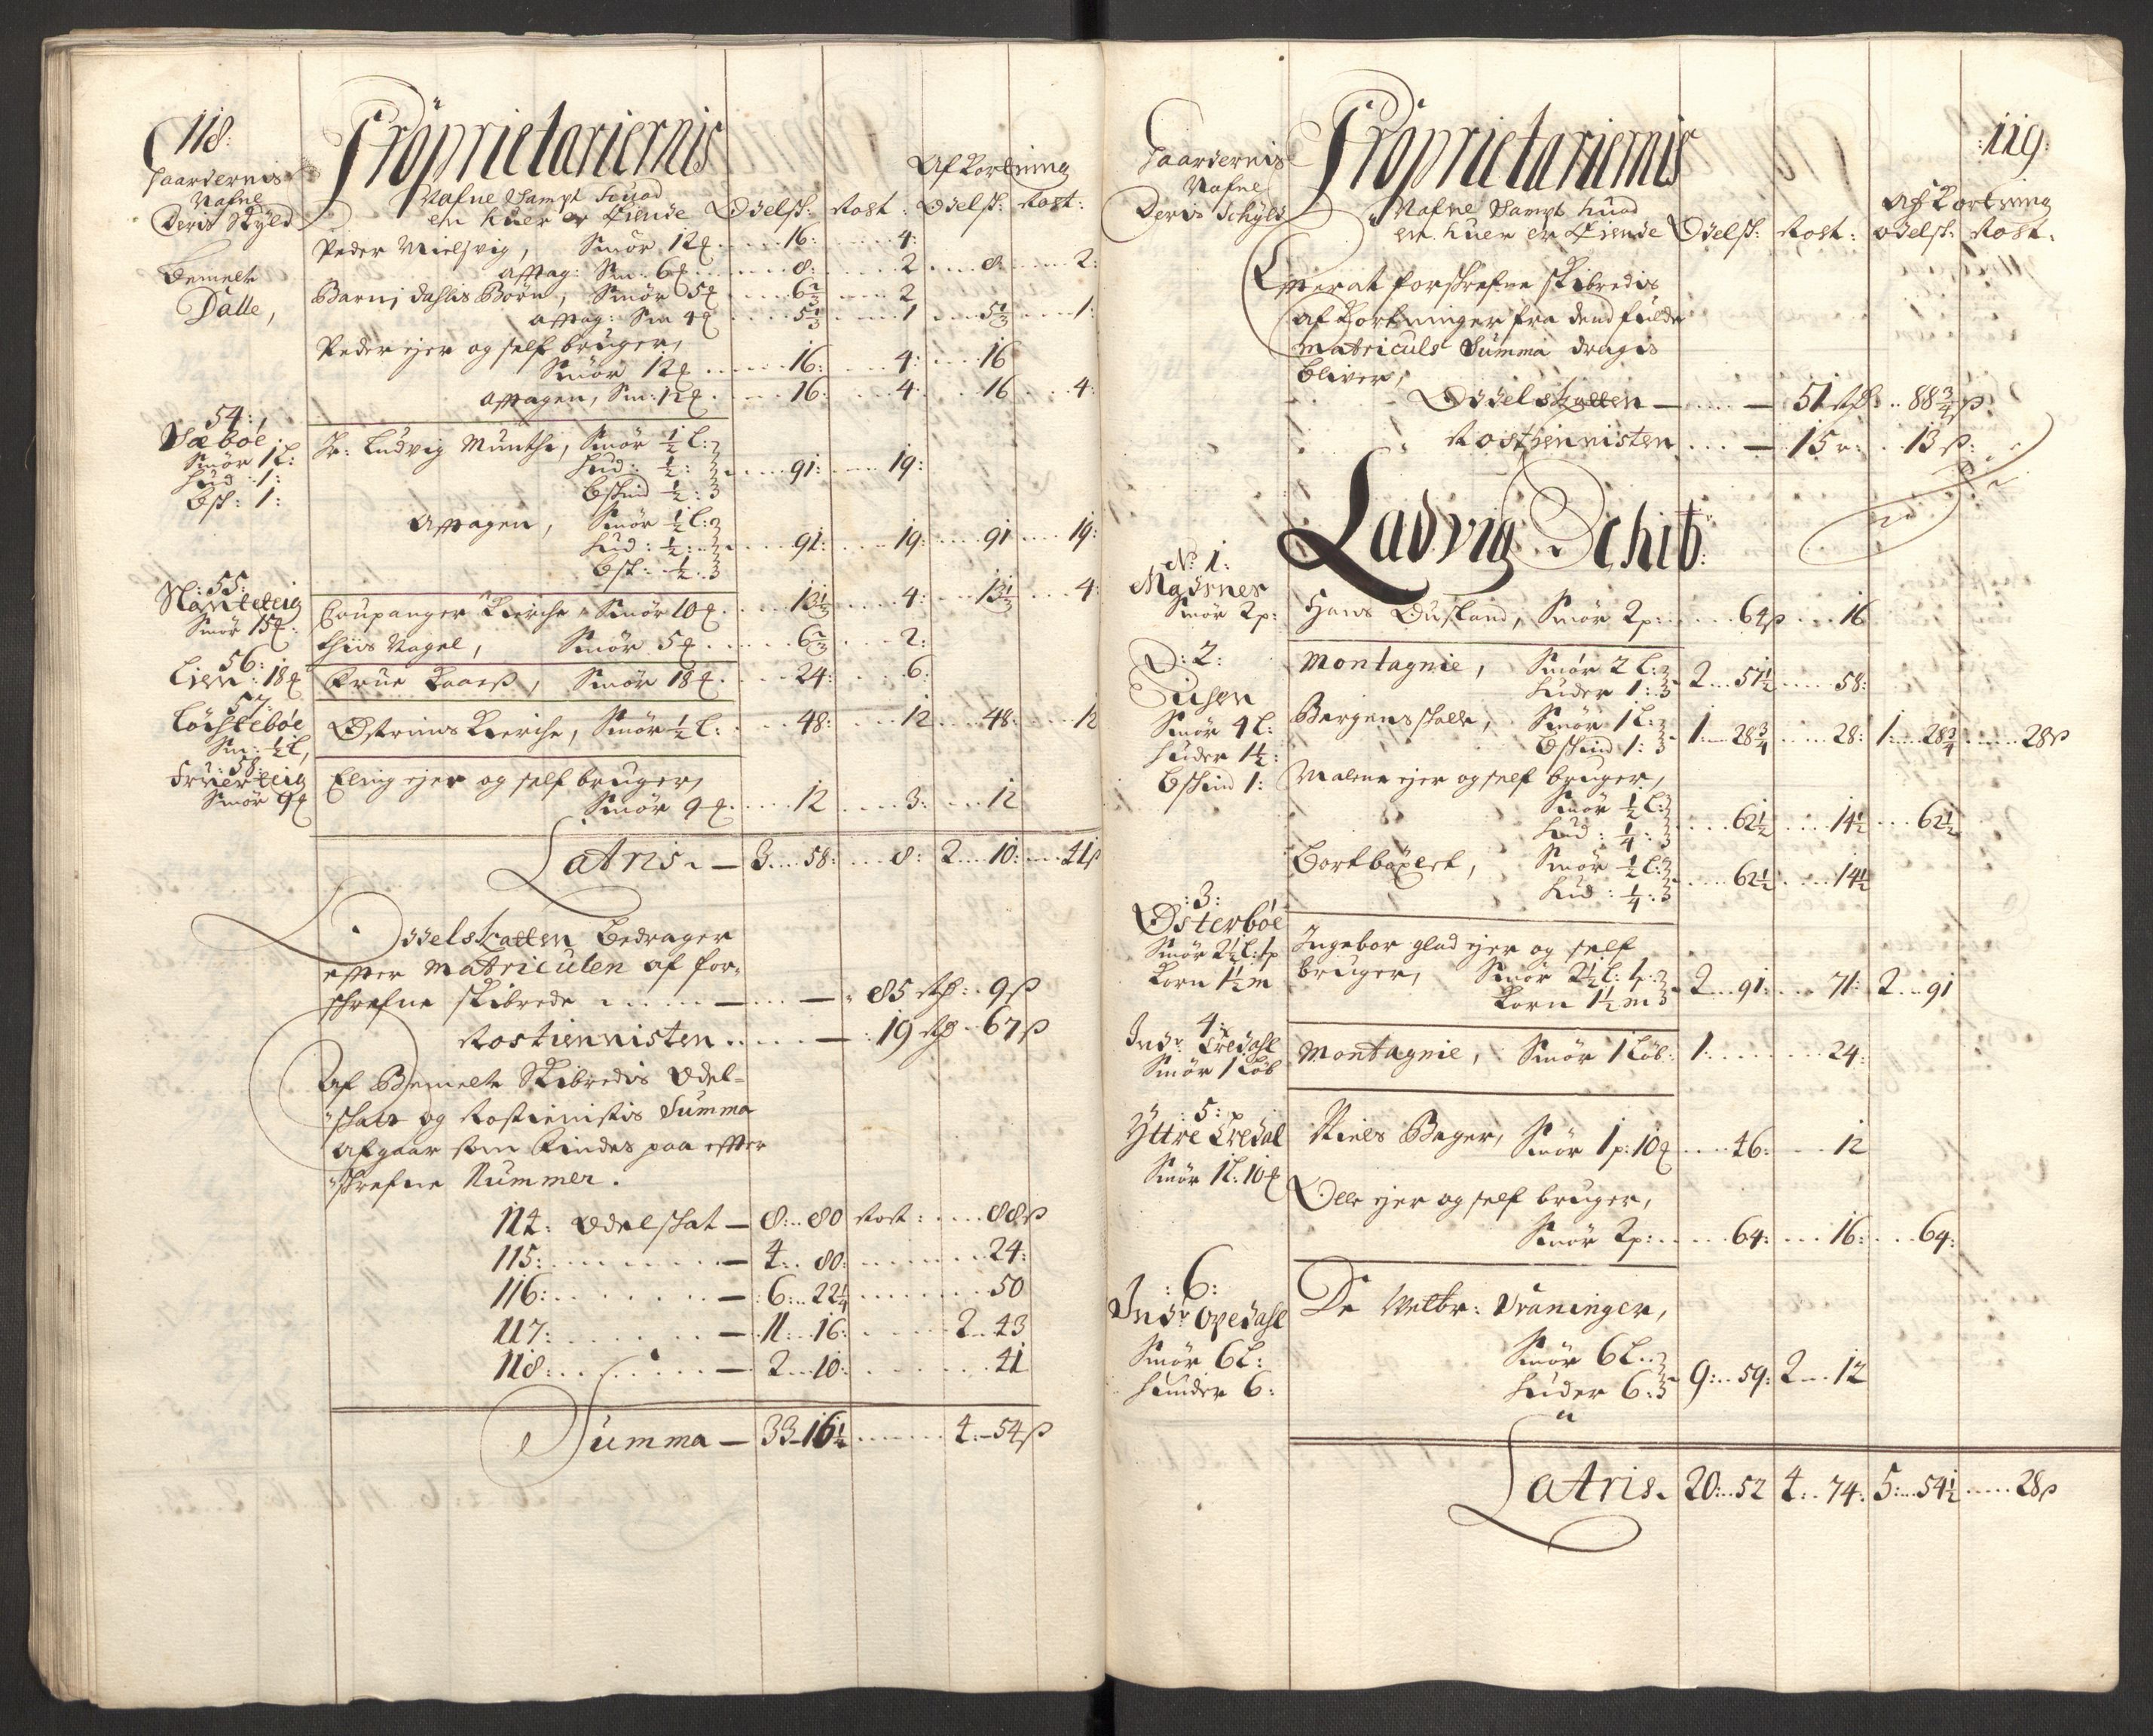 118:
Gaardernis
Nafne
Deris Skyld
Proprietariernis
Nafne Sampt huad
en huer er Eiende
Odelsk: Rost:
Afkortning
Odelsk: Rost:
Bemelte
Dalle,
Peder Nielsvig, Smör 12 ℔ 16: 4:
Aftag: Sm: 6 ℔ 8: 2 8: 2:
Barni dahlis Börn, Smör 5 ℔ 6⅔ 2
Aftag: Sm 4 ℔ 5⅓ 1 5⅓ 1:
Peder ejer og self bruger,
Smör 12 ℔ 16: 4: 16
Aftagen, Sm: 12 ℔ 16: 4: 16 4:
54:
Sæböe
Smör 1 L:
Hud: 1:
Bsk: 1:
Hr: Ludvig Munthe, Smör ½ L:
Hud: ½: 91: 19:
Bskind ½:
Aftagen, Smör ½ L:
Hud: ½: 91: 19: 91 19:
Bsk: ½:
:55:
Slanteteig
Smör 15 ℔:
Coupanger Kierche Smör 10 ℔ 13⅓ 4: 13⅓ 4:
Thiis Nagel, Smör 5 ℔ 6⅔ 2:
56:
Lien: 18 ℔
Frue Kaars, Smör 18 ℔ 24: 6:
57:
Löchteböe
Sm: ½ L,
Ostrims Kierche, Smör ½ L: 48: 12 48: 12
:58:
Fruerteig
Smör 9 ℔
Eling ejer og self bruger,
Smör 9 ℔ 12 3: 12
Latris. — 3 58: 8: 2 10: 41 ß
Odelskatten Bedrager
efter Matriculen af for-
skrefne skibrede — 85 rd: 9 ß
Rostiennisten — 19 rd 67 ß
Af Bemelte Skibredis Odel-
skatt og Rostienistis Summa
afgaar som findes paa efter
skrefne Nummer.
114: Odelskat — 8: 80 Rost: 88 ß
115: — 4: 80: 24:
116: — 6: 22¼ 50
117: — 11: 16: 2 43
118: — 2 10: 41
Summa — 33 16½ 4 54 ß
119:
Gaardernis
Nafne
Deris Schyld
Proprietariernis
Nafne Sampt huad
en huer er Eiende
Odelsk: Rost:
Afkortning
Odelsk: Rost:
Efterat forskrefne skibredis
afkortninger fra dend fulde
Matriculs Summa dragis
bliver,
Odelskatten — 51 rd: 88¾ ß
Rostiennisten — 15 r: 13 ß:
Ladvig Schib:
No 1:
Madsnes
Smör 2 p:
Hans Dusland, Smör 2 p: 64 ß 16
:2:
Smör 4 L:
Huder 1½:
Bskind 1:
Montagnie, Smör 2 L:
Huder 1: 2 57½ 58:
Bergens skolle, Smör 1 L:
Bskind 1: 1: 28¾ 28: 1: 28¾ 28 ß
Malene ejer og self bruger,
Smör ½ L:
Hud: ¼: 62½ 14½ 62½
Bortböxlet, Smör ½ L:
Hud: ¼: 62½ 14½
:3:
Österböe
Smör 2½ L: 1 p
Korn 1½ m
Ingebor glad ejer og self
bruger, Smör 2½ L: 1 p:
Korn 1½ m 2 91: 71: 2 91
4:
Indr Eredahl
Smör 1 Löb
Montagnie, Smör 1 Löb: 1: 24:
:5:
Yttre Eredal
Smör 1 L: 10 ℔
Niels Bager, Smör 1 p: 10 ℔ 46: 12
Olle ejer og self bruger,
Smör 2 p: 64: 16: 64:
:6:
Indr Opedahl
Smör 6 L:
Huuder 6:
De Welbr: Dräninger,
Smör 6 L:
Huder 6: 9: 59: 2 12
Latris. 20: 52 4: 74: 5: 54½ 28 ß